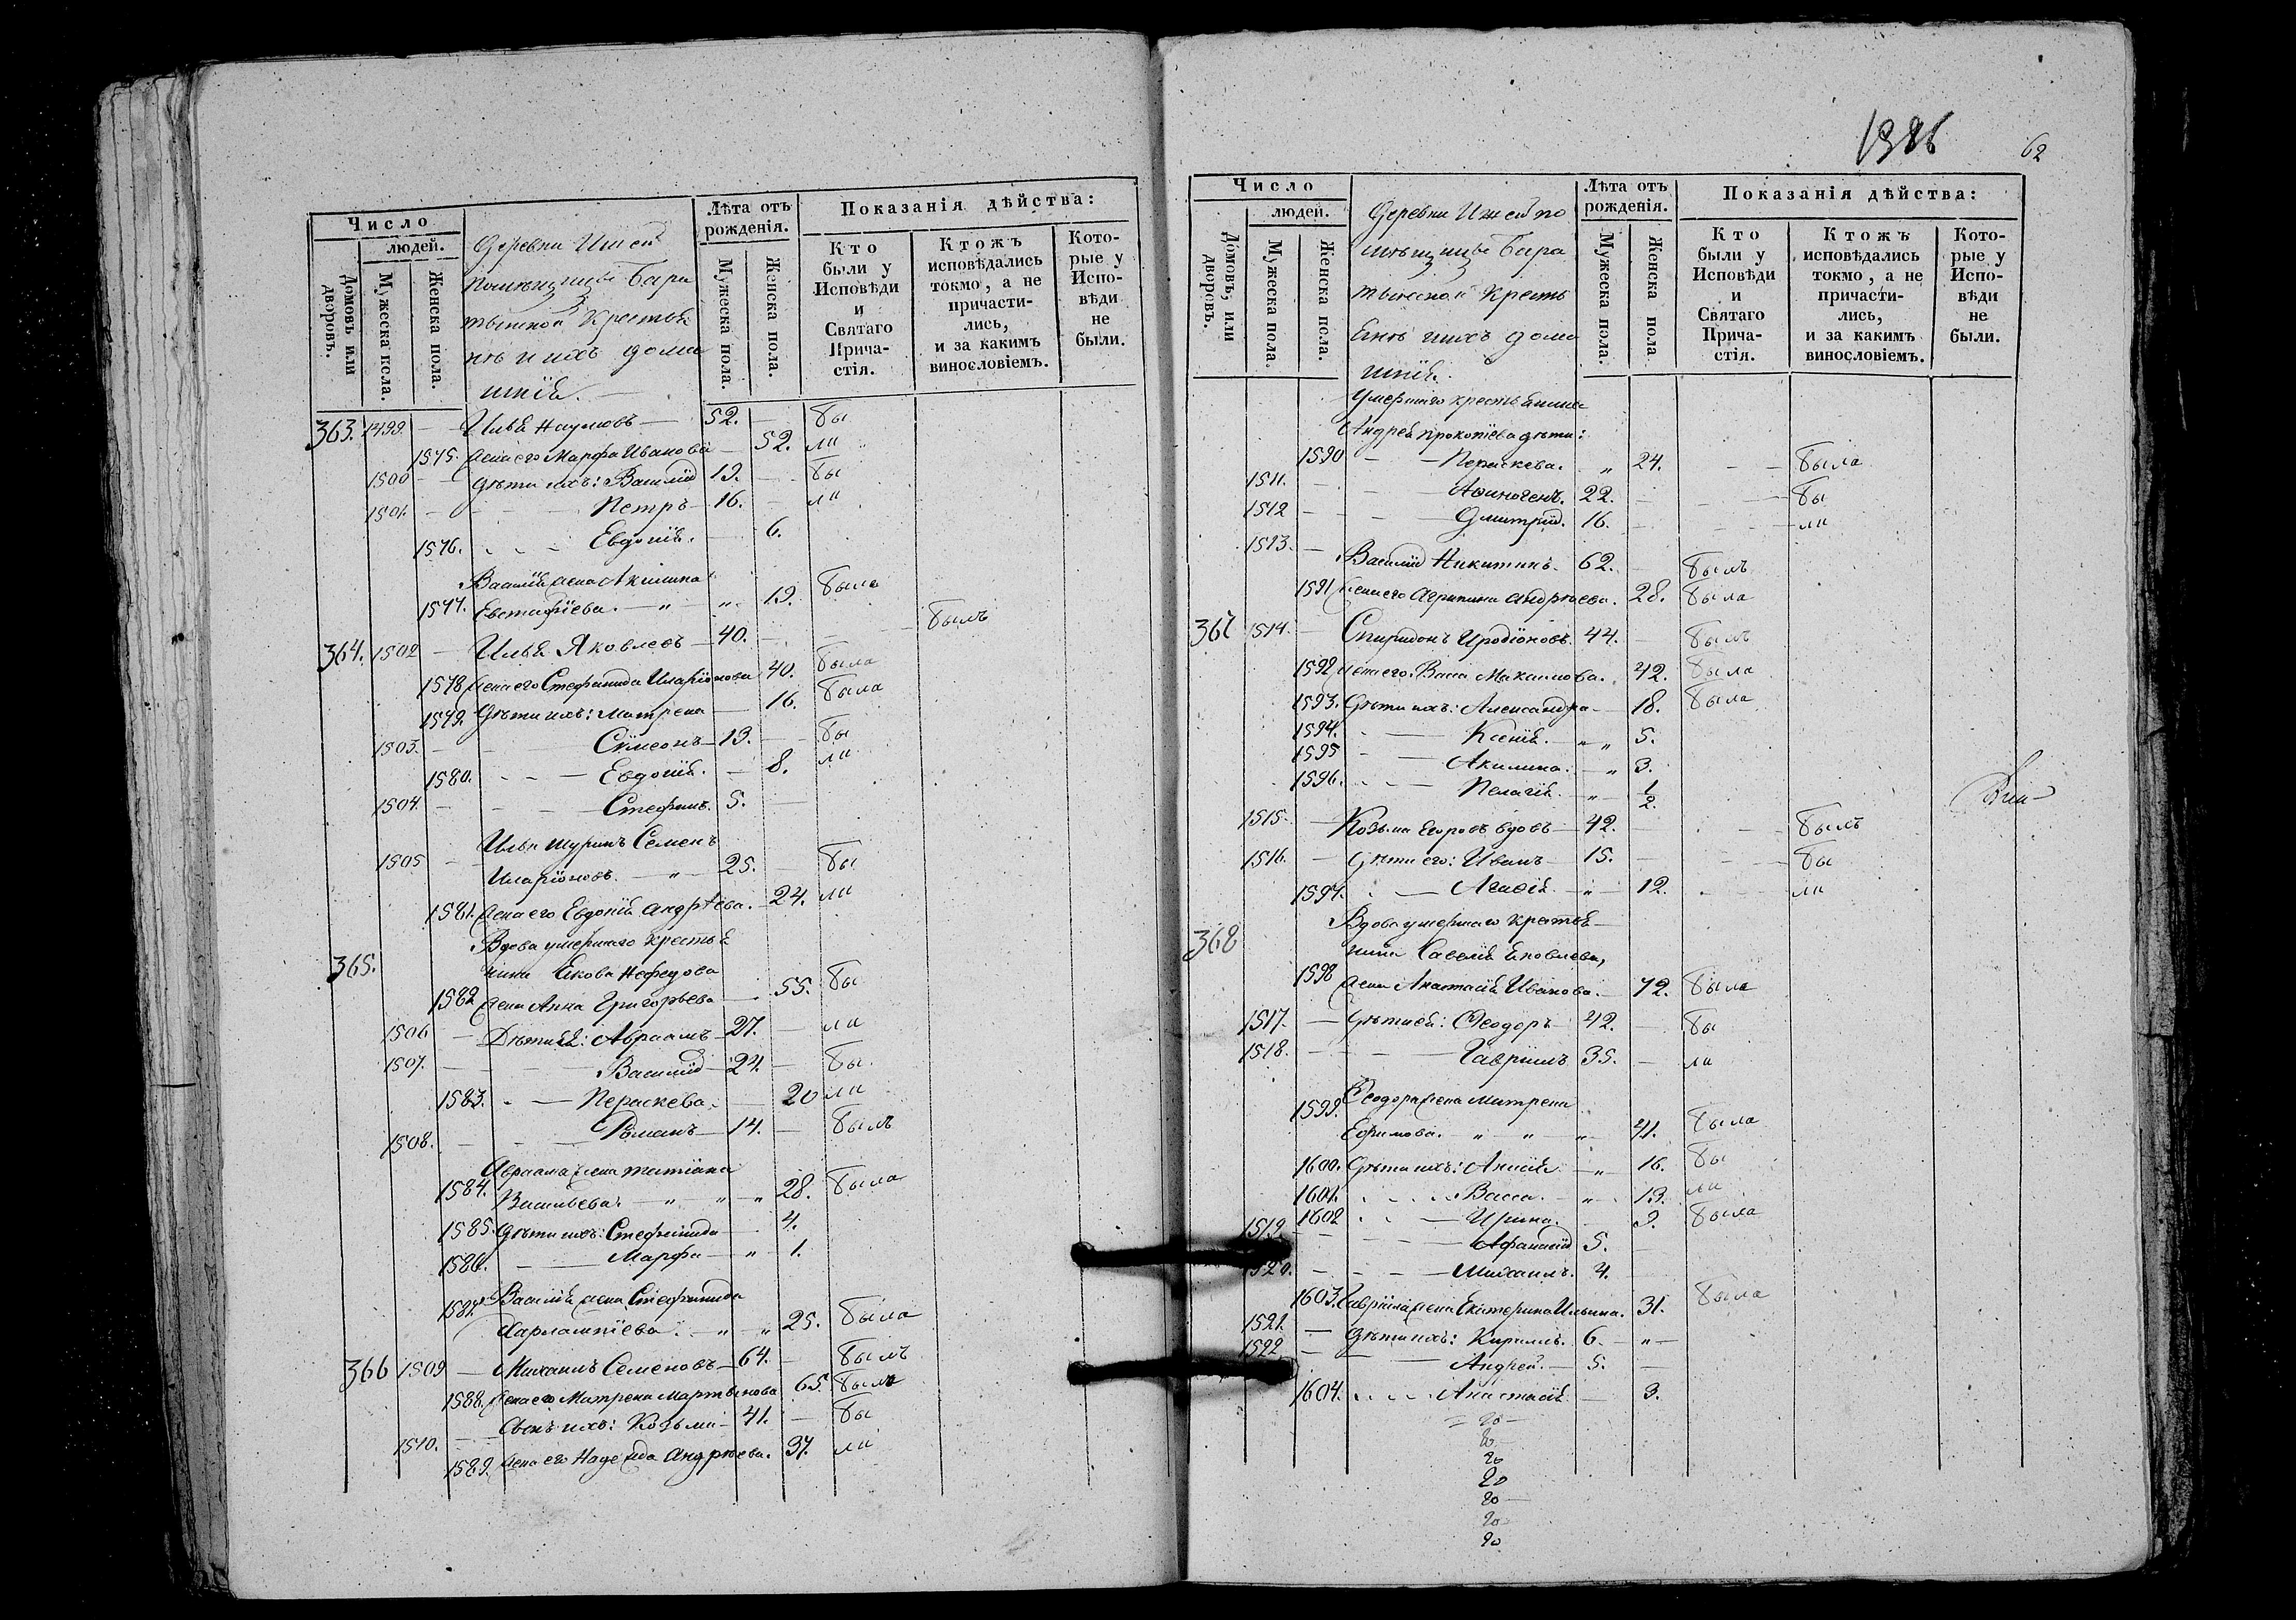 Число
людей.
Домовъ или дворовъ.
Мужеска пола.
Женска пола.
Деревни Ижей
помѣщицы Бара
тынской Крестья
нъ и ихъ дома
шнія.
Лѣта отъ рожденія.
Мужеска пола.
Женска пола.
Показанія дѣйства:
Кто были у Исповѣди и Святаго Прича-стія.
Ктожъ исповѣдались токмо, а не причасти-лись, и за какимъ винословіемъ.
Кото-рые у Испо-вѣди не были.
363. 1499. — Илья Наумовъ — 52. — бы
1575. жена его Марфа Иванова — 52. ли
1500 — дѣти ихъ: Василій 19. — бы
1501. — Петръ — 16. — ли
1576. Евдокія. — 6.
Василія жена Акилина
1577. Евстафіева. — " — " 19. была
364. 1502 — Илья Яковлевъ — 40. — — былъ
1578 жена его Стефанида Иларіонова 40. была
1579. Дѣти ихъ: Матрена — 16. была
1503. — Сѵмеонъ — 13. — бы
1580. — Евдокія. — 8. ли
1504. — Стефанъ. 5. —
Ильи шуринъ Семенъ
1505 — Иларіоновъ. — " — 25. — бы
1581. жена его Евдокія Андрѣева. — 24. ли
365. Вдова умершаго крестья
нина Якова Нефедова
1582 жена Анна Григорьева — 55. бы
1506 — Дѣти ея: Авраамъ — 27. — ли
1507. — Василій — 24. — бы
1583. — Параскева. — 20 ли
1508. — Романъ — 14. — былъ
Авраама жена Татіана
1584. Васильева. — " — " — " 28. была
1585. Дѣти ихъ: Стефанида — 4.
1586. — Марфа — " — 1.
1587. Василія жена Стефанида
Харлампіева. — " — " 25. была
366 1509 — Михаилъ Семеновъ — 64. — былъ
1588. жена его Матрена Мартынова 65. была
1510. — Сынъ ихъ: Козьма — 41. — бы
1589. жена его Надежда Андрѣева. 37. ли
62
Число
людей.
Домовъ, или дворовъ.
Мужеска пола.
Женска пола.
Деревни Ижей по
мѣщицы Бара
тынской Кресть
янъ и ихъ дома
шнія.
Лѣта отъ рожденія.
Мужеска пола.
Женска пола
Показанія дѣйства:
Кто были у Исповѣди и Святаго Прича-стія.
Ктожъ исповѣдались токмо, а не причасти-лись, и за какимъ винословіемъ.
Кото-рые у Испо-вѣди не были.
Умершаго крестьянина
Андрея Прокопіева дѣти:
1590 — Параскева. " 24. — — была
1511. — Аѳиногенъ. 22. — — бы
1512 — Дмитрій. 16. — — ли
1513. — Василій Никитинъ. 62. — былъ
1591 жена его Агрипина Андрѣева. 28. была
367 1514. — Спиридонъ Иродіоновъ. 44. — былъ
1592 жена его Васса Максимова. 42. была
1593. Дѣти ихъ: Александра — 18. была
1594. — Ксенія. — " " 5.
1595 — Акилина. — " 3.
1596. — Пелагія. — " — 1/2.
1515. — Козьма Егоровъ вдовъ — 42. — — былъ
1516. — Дѣти его: Иванъ — 15. — — бы
1597. — Агафія. — " — 12. — ли
368 Вдова умершаго крестья
нина Савелія Яковлева,
1598 жена Анастасія Иванова. — 72. была
1517. — Дѣти ея: Ѳеодоръ — 42. — бы
1518. — Гавріилъ 35. — ли
1599. Ѳеодора жена Матрена
Ефимова. " — " — " 41. была
1600. Дѣти ихъ: Анисія — " 16. бы
1601. — Васса. — " — 13. ли
1602 — Ирина. — 9. была
1519 — Афанасій 5. —
1520. — Михаилъ. 4. —
1603. Гавріила жена Екатерина Ильина. 31. была
1521. — Дѣти ихъ: Кирилъ. 6. — " —
1522 — Андрей. — 5. —
1604. — Анастасія. — 3.
20 —
20 —
20
20
20 —
20 —
20